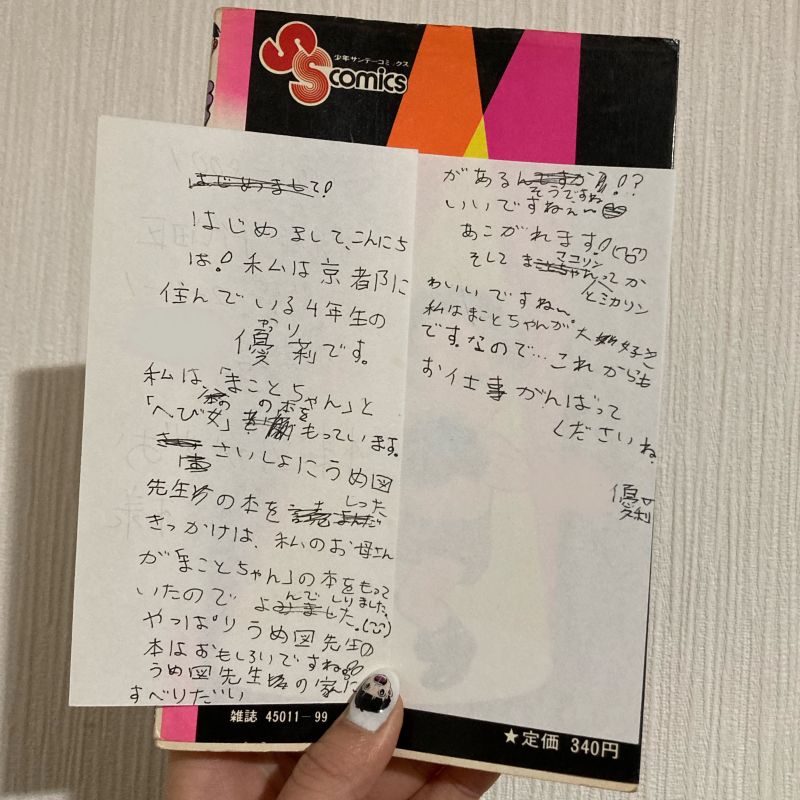 少年サンデーコミックス
SS comics
はじめまして!
はじめまして、こんにち
は! 私は京都に
住んでいる4年生の
優莉です。
ゆり
私は、「まことちゃん」と
「へび女」の本を
もっています。
さいしょにうめ図
先生の本をしった
きっかけは、私のお母さん
が「まことちゃん」の本をもって
いたのでよんでしりました。
やっぱりうめ図先生の
本はおもしろいですね
うめ図先生の家に
すべりだい
があるんですか!?
そうですね
いいですねぇ~
あこがれます!
そしてマコリン
とミカリン
かわいいですね~
私はまことちゃんが大好き
です。なので…これからも
お仕事がんばって
くださいね。
優莉
雑誌 45011-99
★定価 340円